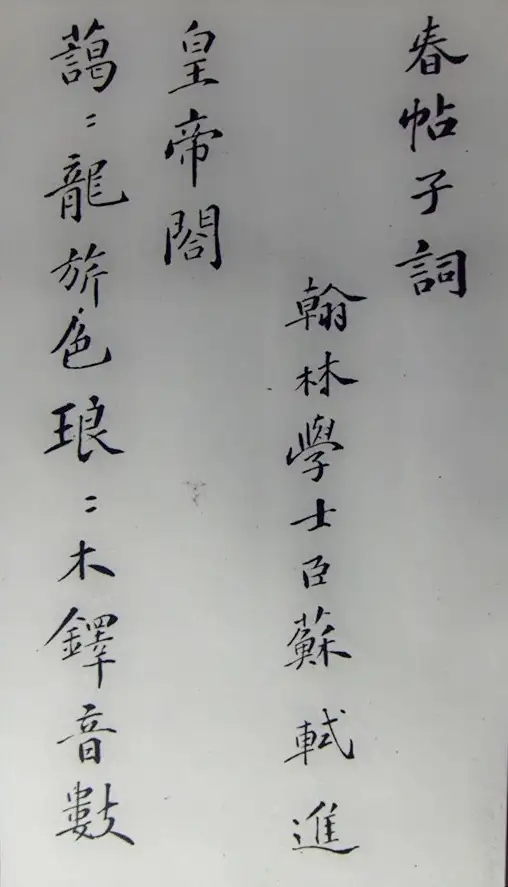 春帖子詞
翰林學士臣蘇軾進
皇帝閤
藹〻龍旂色琅〻木鐸音數